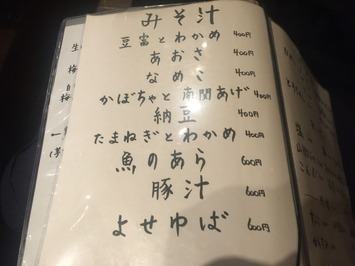 みそ汁
豆富とわかめ 400円
あおさ 400円
なめこ 400円
かぼちゃと南関あげ 400円
納豆 400円
たまねぎとわかめ 400円
魚のあら 600円
豚汁 600円
よせゆば 600円